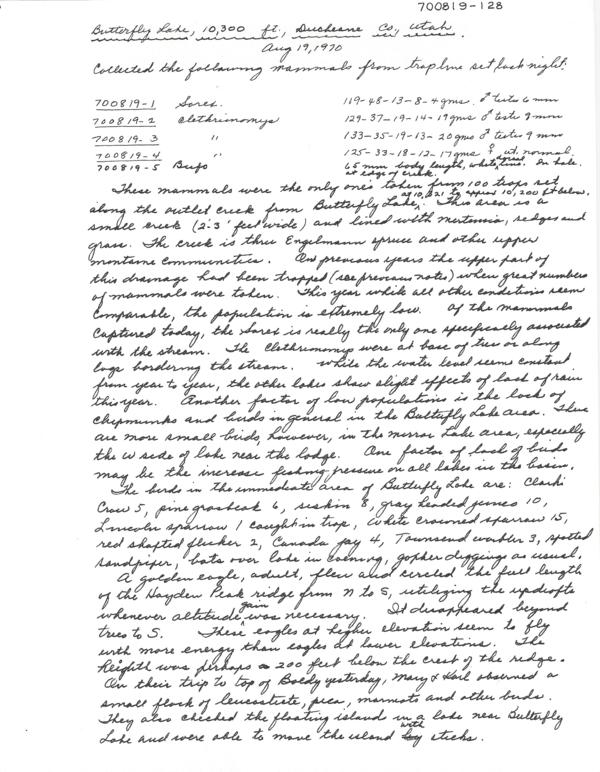 700819-128
Butterfly Lake, 10,300 ft., Duchesne Co., Utah.
Aug 19, 1970
Collected the following mammals from trapline set last night:
700819-1 Sorex. 119-48-13-8-4 gms. ♂ testes 6 mm
700819-2 Clethrionomys 129-37-19-14-19 gms ♂ testes 9 mm
700819-3 " 133-35-19-13-20 gms ♂ testes 9 mm
700819-4 " 125-33-18-12-17 gms ♀ ut. normal.
700819-5 Bufo 65 mm body length, white dorsal line. In hole
at edge of creek.
These mammals were the only ones taken from 100 traps set
at 10,321 to approx 10,200 ft below.
along the outlet creek from Butterfly Lake. This area is a
small creek (2-3 feet wide) and lined with mertensia, sedges and
grass. The creek is thru Engelmann spruce and other upper
montane communities. On previous years the upper part of
this drainage had been trapped (see previous notes) when great numbers
of mammals were taken. This year while all other conditions seem
comparable, the population is extremely low. Of the mammals
captured today, the Sorex is really the only one specifically associated
with the stream. The Clethrionomys were at base of tree or along
logs bordering the stream. While the water level seem constant
from year to year, the other lakes show slight effects of lack of rain
this year. Another factor of low populations is the lack of
chipmunks and birds in general in the Butterfly Lake area. There
are more small birds, however, in the Mirror Lake area, especially
the W side of lake near the lodge. One factor of lack of birds
may be the increase fishing pressure on all lakes in the basin.
The birds in the immediate area of Butterfly Lake are: Clark
Crow 5, pine grosbeak 6, siskin 8, gray headed junco 10,
Lincoln sparrow 1 caught in trap, white crowned sparrow 15,
red shafted flicker 2, Canada jay 4, Townsend warbler 3, spotted
sandpiper, bats over lake in evening, gopher diggings as usual.
A golden eagle, adult, flew and circled the full length
of the Hayden Peak ridge from N to S, utilizing the updrafts
whenever altitude gain was necessary. It disappeared beyond
trees to S. These eagles at higher elevation seem to fly
with more energy than eagles at lower elevations. The
heighth was perhaps a 200 feet below the crest of the ridge.
On their trip to top of Baldy yesterday, Mary & Karl observed a
small flock of leucosticte, pica, marmots and other birds.
They also checked the floating island in a lake near Butterfly
Lake and were able to move the island with sticks.